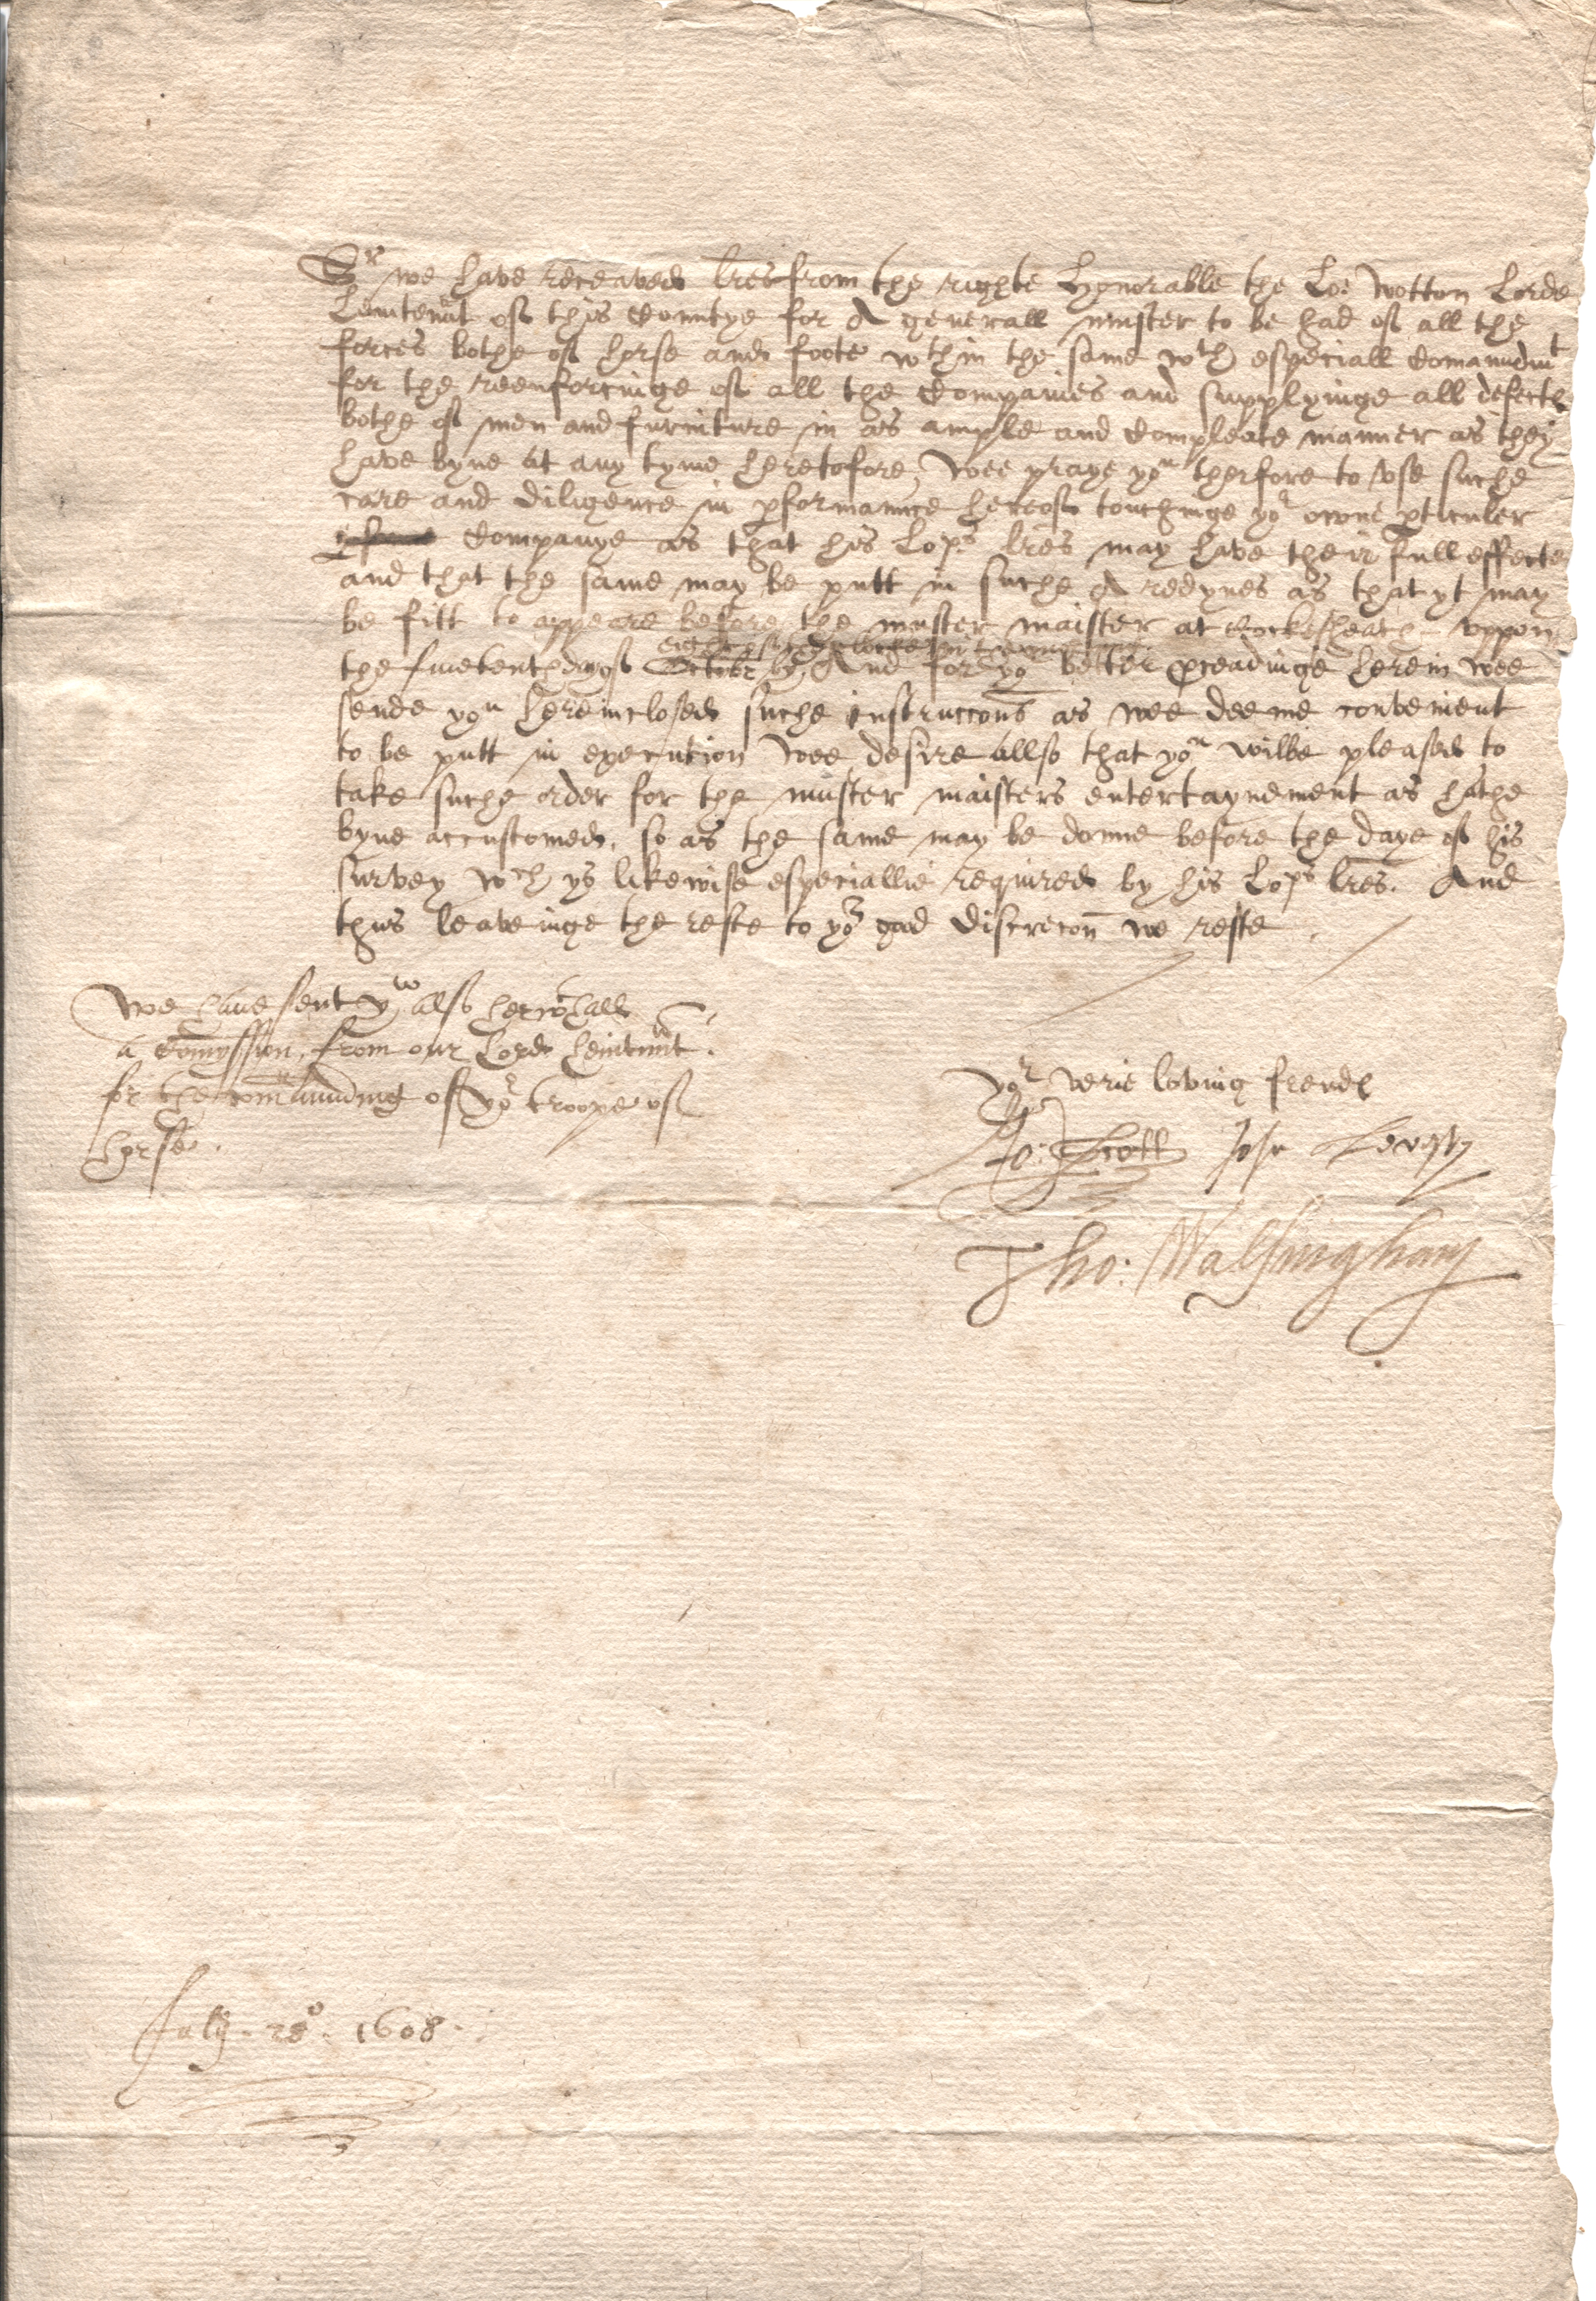 Sr we have receaved lres from the righte Honorable the Lo: Wotton Lorde
Leiutenut of this Countye for A generall muster to be had of all the
forces bothe of horse and foote wthin the same wth especiall Comaundmt
for the reenforcinge of all the Companies and supplyinge all defects
bothe of men and furniture in as ample and Compleate manner as they
have byne at any tyme heretofore, Wee praye you therfore to vse suche
care and diligence in pformaunce hereof touchinge yor owne pticuler
Companye as that his Lops lres may have their full effecte
and that the same may be putt in suche A redynes as that yt may
be fitt to appeare before the muster maister at Cockesheath vppon
eight of the clocke in
the daye of October by And for yor better pceadinge herein wee
sende you hereinclosed suche instruccons as wee deeme convenient
to be putt in execution Wee desire allso that you wilbe pleased to
take suche order for the muster maisters entertaynement as hathe
byne accustomed, so as the same may be donne before the daye of his
survey wch ys likewise especiallie required by his Lops lres. And
thus leaveinge the reste to yor good discrecon we reste
We have sent yw also herwthall
a Comyssion, from our Lord Leiutennt.
for the comaunding of yor troope of
horse.
yor verie loving frends
Jo: Scott John Leveson
Tho: Walsingham
July. 28o. 1608.